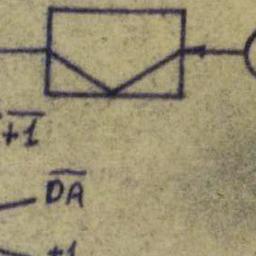 +1̅
D̅A̅
+1